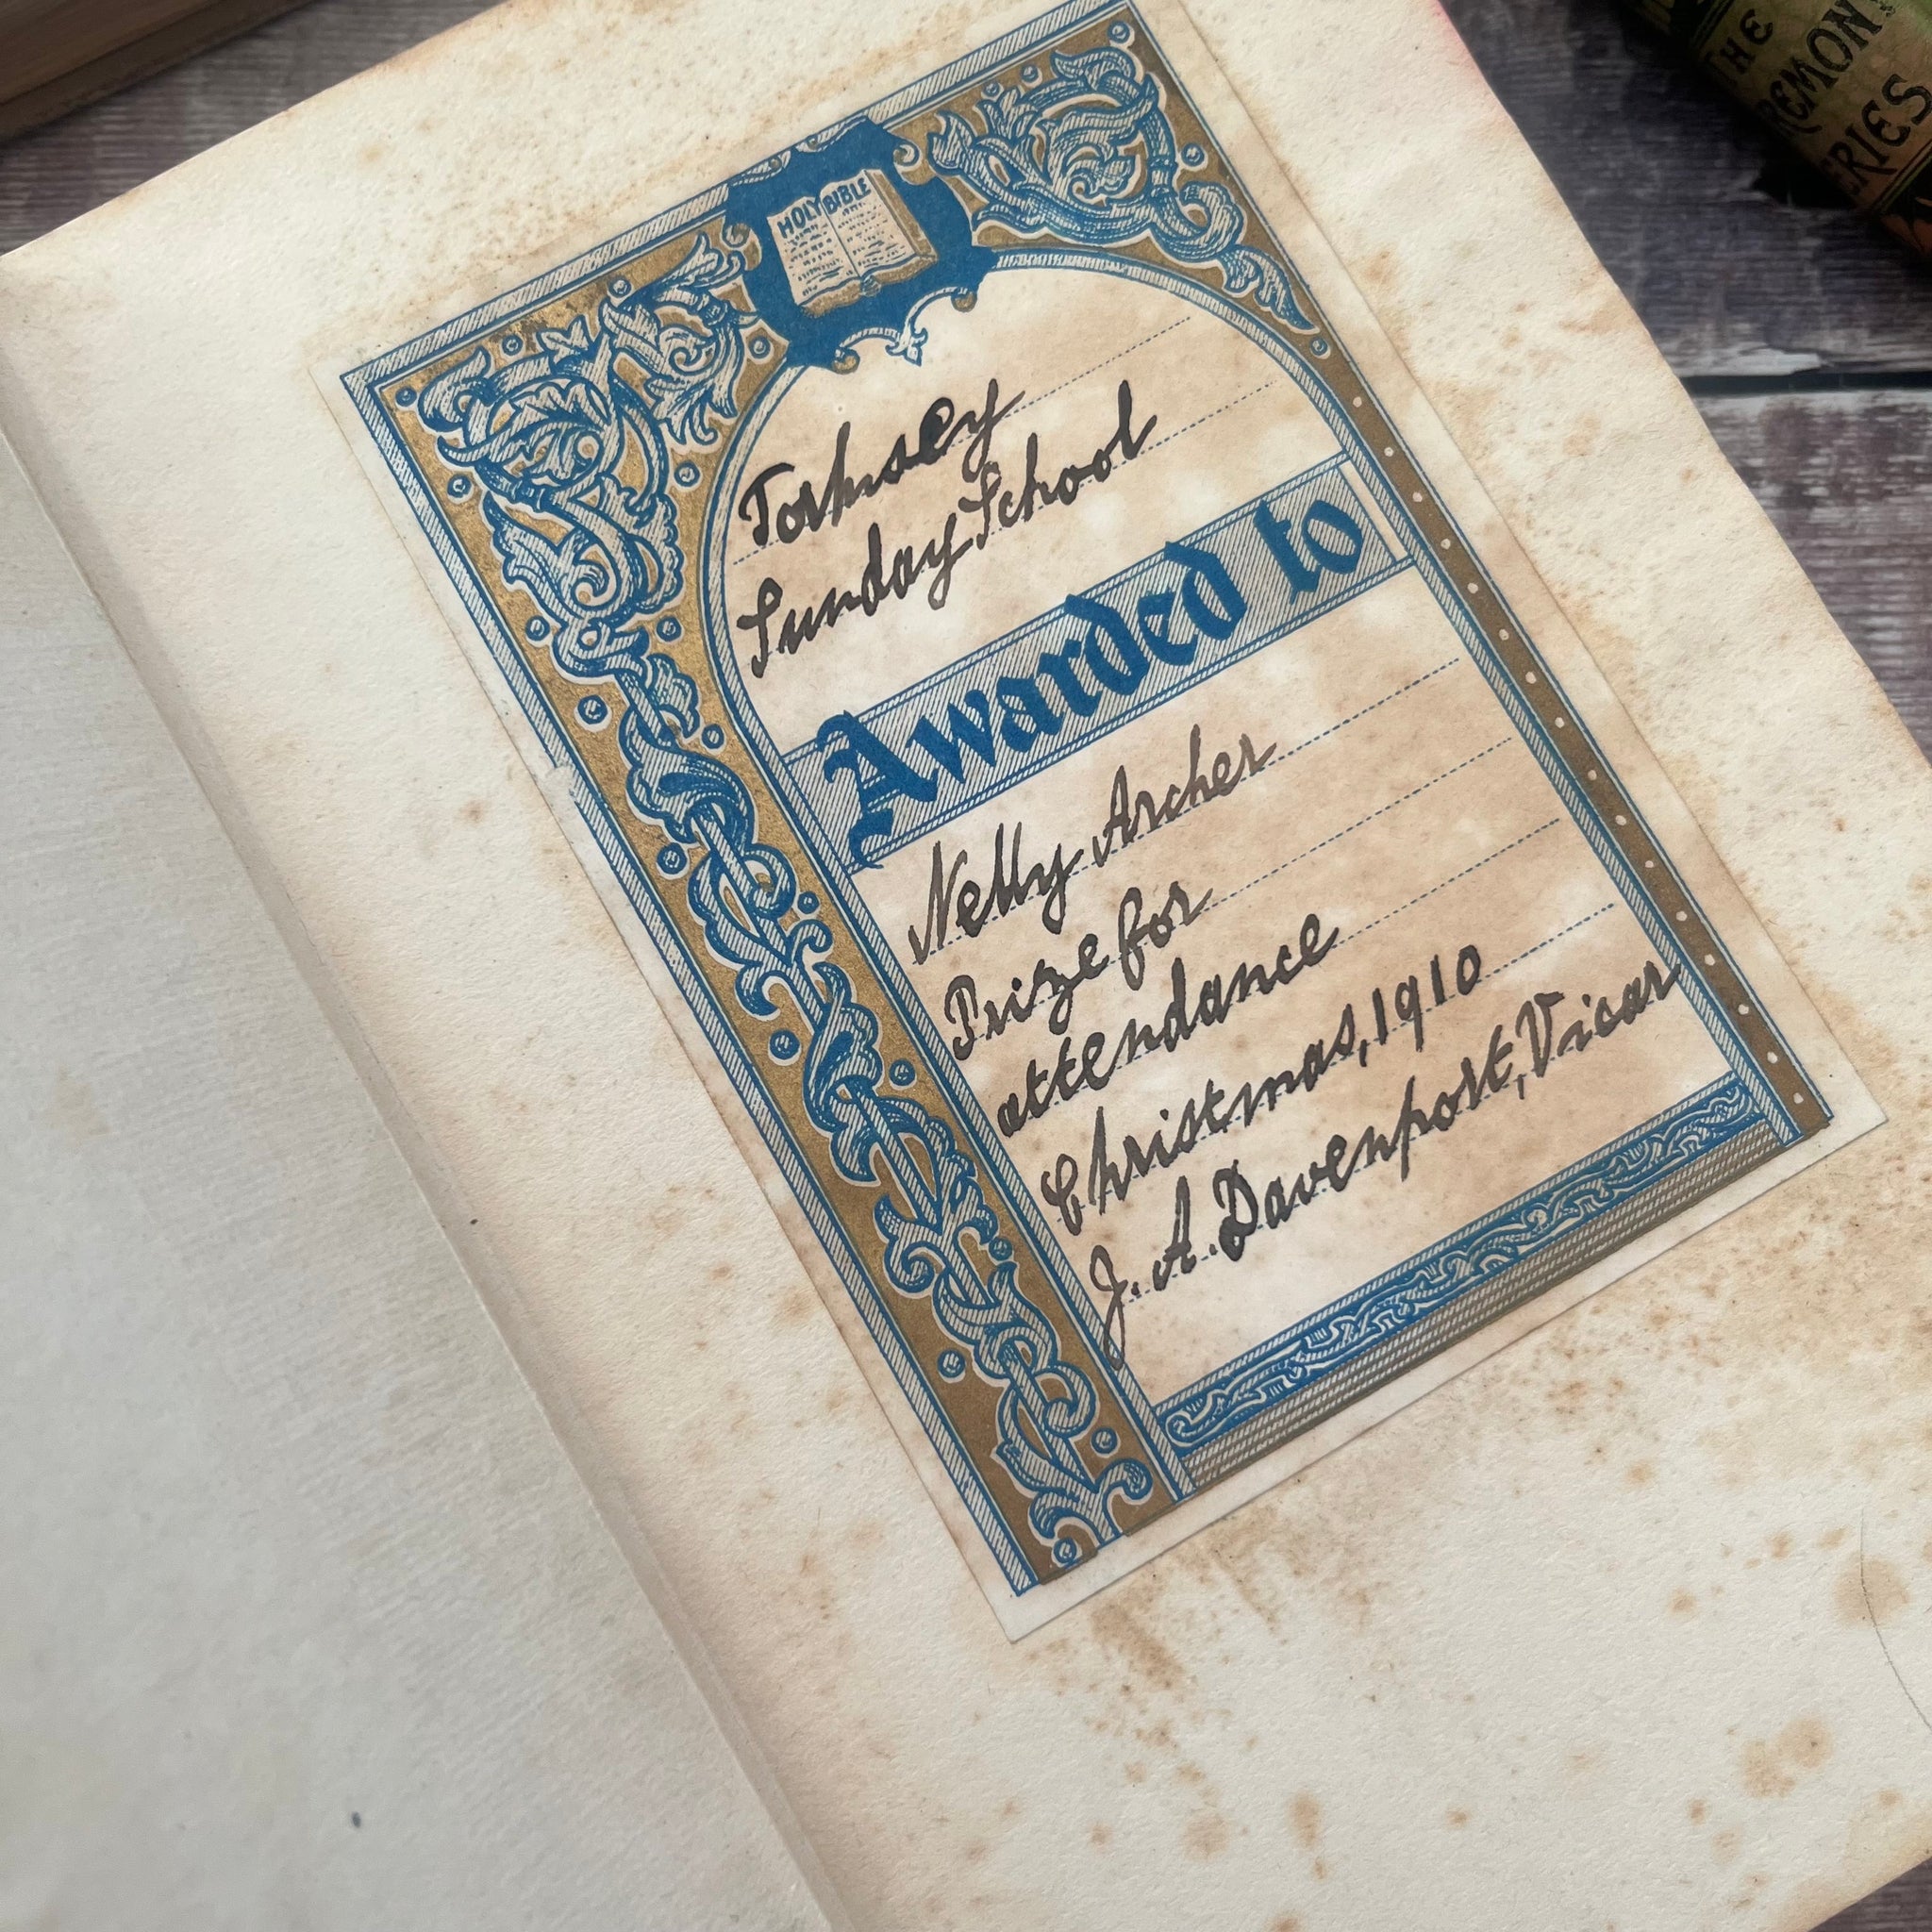 THE
REMON
ERIES
HOLY BIBLE
Torksey
Sunday School
Awarded to
Nelly Archer
Prize for
attendance
Christmas, 1910
J. A. Davenport, Vicar